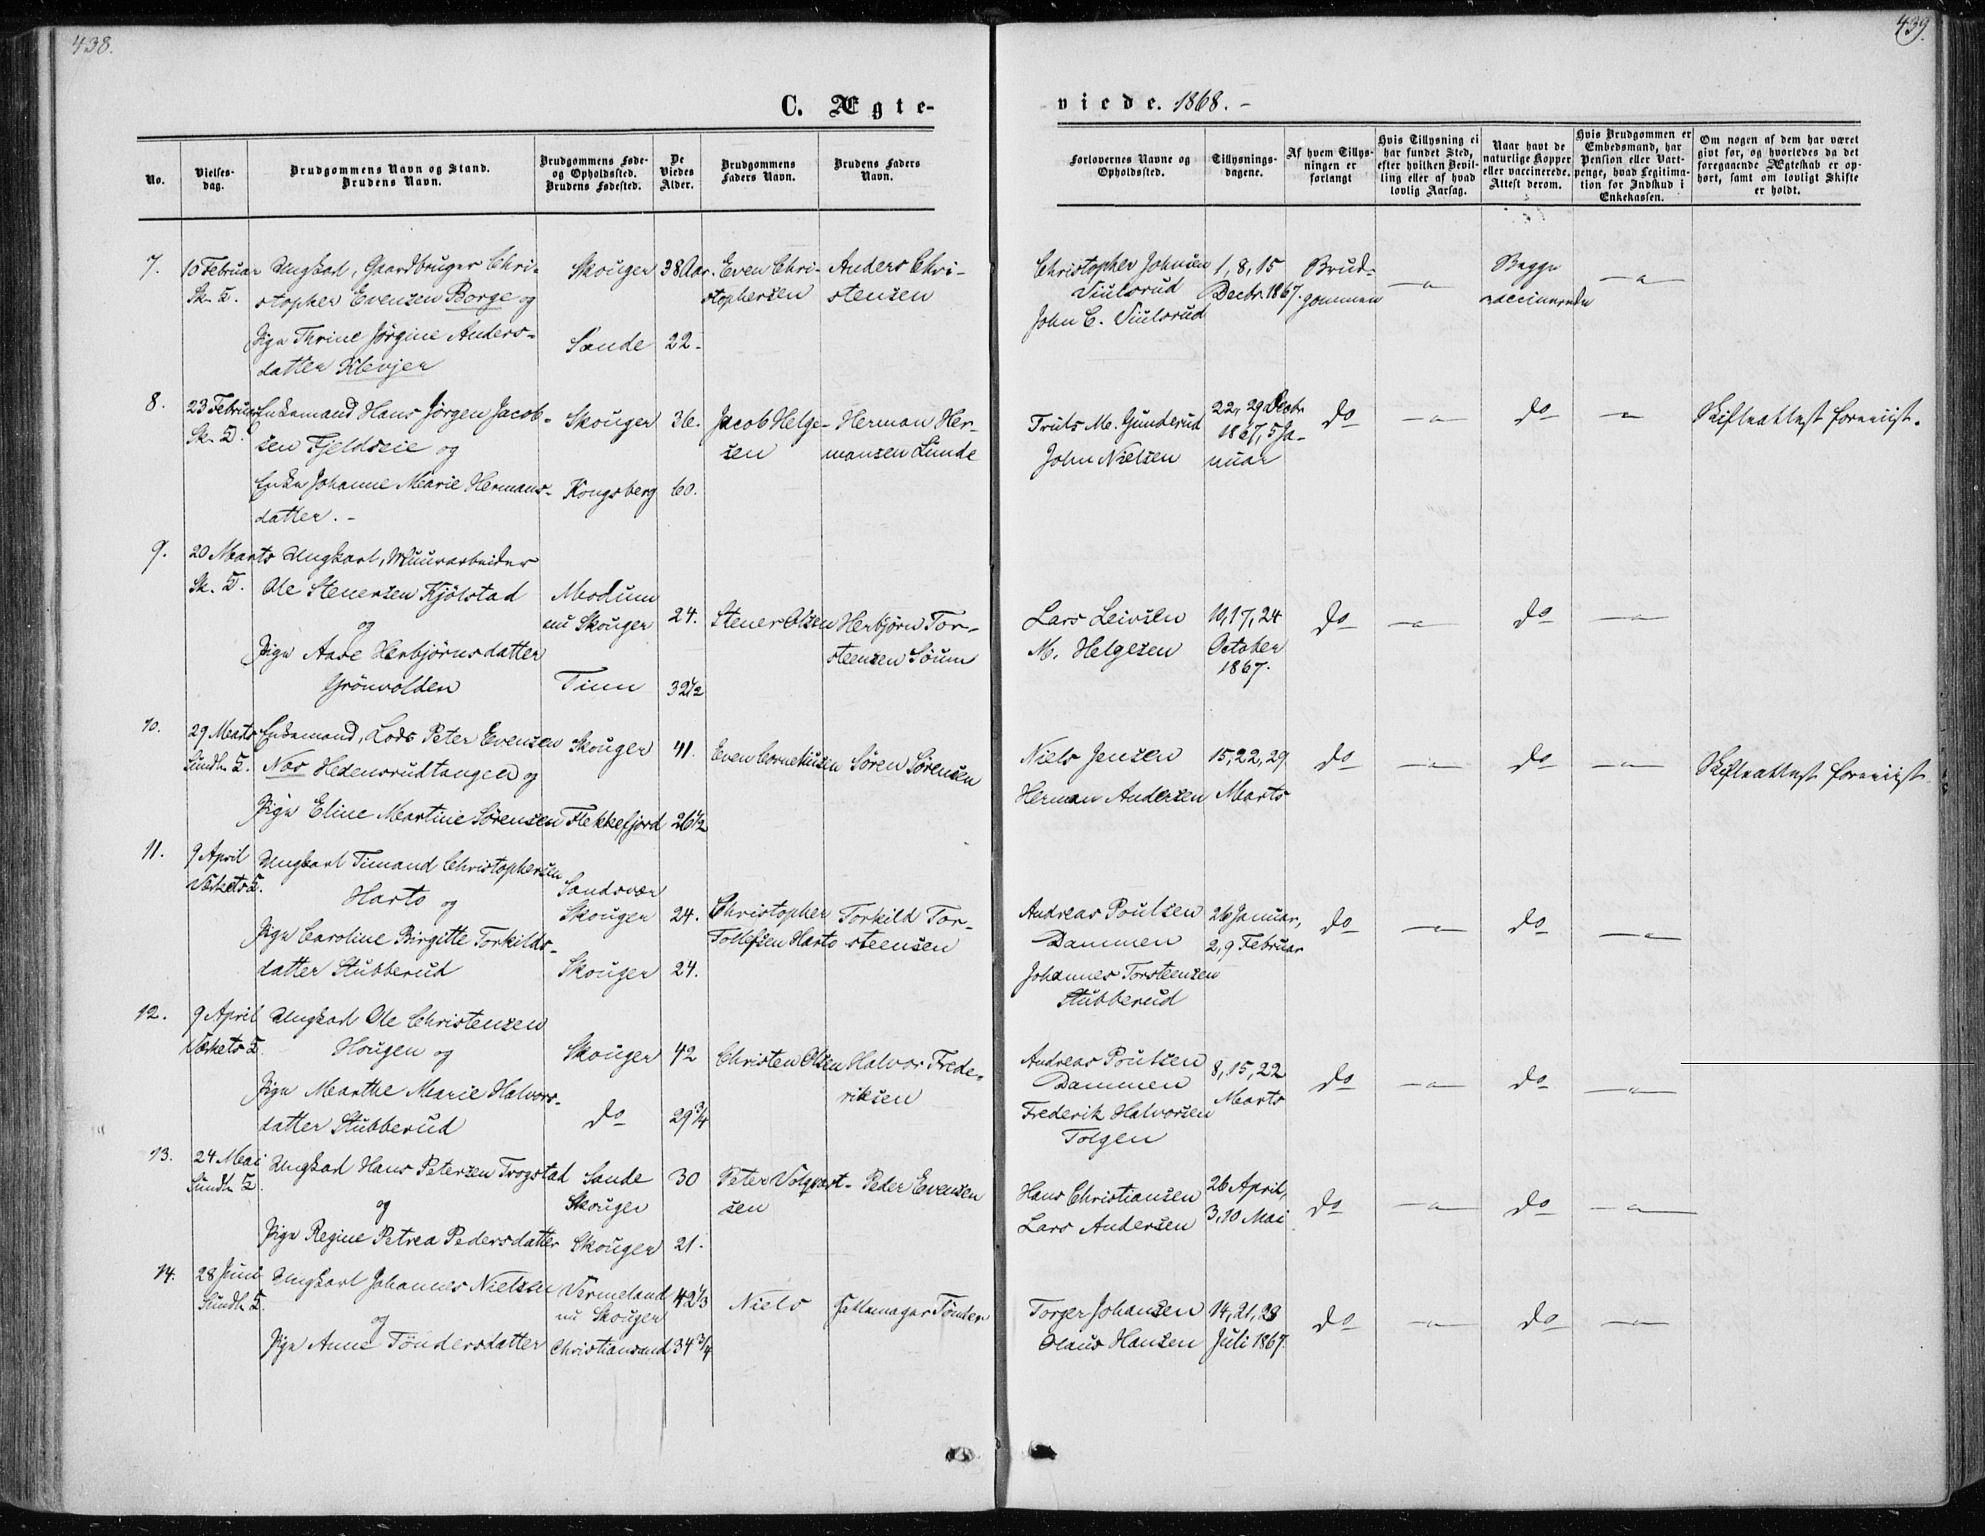 438.
439.
C. Ægte-
viede. 1868. -
No.
Vielses-
dag.
Brudgommens Navn og Stand.
Brudens Navn.
Brudgommens Føde-
og Opholdssted.
Brudens Fødested.
De
Viedes
Alder.
Brudgommens
Faders Navn.
Brudens Faders
Navn.
Forlovernes Navne og
Opholdssted.
Tillysnings-
dagene.
Af hvem Tillys-
ningen er
forlangt
Hvis Tillysning ei
har fundet Sted,
efter hvilken Bevil-
ling eller af hvad
lovlig Aarsag.
Naar havt de
naturlige Kopper
eller vaccinerede.
Attest derom.
Hvis Brudgommen er
Embedsmand, har
Pension eller Vart-
penge, hvad Legitima-
tion for Indskud i
Enkekassen.
Om nogen af dem har været
givt før, og hvorledes da det
foregaaende Ægteskab er op-
hørt, samt om lovligt Skifte
er holdt.
7.
10 Februar
Sk. K.
Ungkarl, Gaardbruger Chri-
stopher Evensen Borge og
Pige Thrine Jørgine Anders-
datter Klevjer
Skouger
Sande
38 Aar.
22.
Even Chri-
stophersen
Anders Chri-
stensen
Christopher Johnsen
Viulsrud
John C. Viulsrud
1, 8, 15
Decbr. 1867.
Brud-
gommen
- " -
Begge
vaccinerede
- " -
8.
23 Februar
Sk. K.
Enkemand Hans Jörgen Jacob-
sen Fjeldseie og
Enke Johanne Marie Hermans-
datter. -
Skouger
Kongsberg
36.
60.
Jacob Helge-
sen
Herman Her-
mansen Lunde
Truls M. Gunderud
John Nielsen
22, 29 Decbr
1867, 5 Ja-
nuar
do
- " -
do
- " -
Skifteattest foreviist.
9.
20 Marts
Sk. K.
Ungkarl, Muurarbeider
Ole Stenersen Kjölstad
og
Pige Aase Herbjörnsdatter
Grönvolden
Modum
nu Skouger
Tinn
24.
32½
Stener Olsen
Herbjörn Tor-
steensen Söum
Lars Leivsen
M. Helgesen
10, 17, 24
October
1867.
do
- " -
do
- " -
10.
29 Marts
Sundh. K.
Enkemand, Lods Peter Evensen
Nos Hedensrudtangen og
Pige Eline Martine Sörensen
Skouger
Flekkefjord
41.
26½
Even Corneliusen
Sören Sörensen
Niels Jensen
Herman Andersen
15, 22, 29
Marts
do
- " -
do
- " -
Skifteattest foreviist
11.
9 April
Værkets K.
Ungkarl Timand Christophersen
Harto og
Pige Caroline Birgitte Torkilds-
datter Stubberud
Sandsvær
Skouger
Skouger
24.
24.
Christopher
Tollefsen Harto
Torkild Tor-
steensen
Andreas Poulsen
Dammen
Johannes Torsteensen
Stubberud
26 Januar,
2, 9 Februar
do
- " -
do
- " -
12.
9 April
Værkets K.
Ungkarl Ole Christensen
Hougen og
Pige Marthe Marie Halvors-
datter Stubberud
Skouger
do
42
29¾
Christen Olsen
Halvor Frede-
riksen
Andreas Poulsen
Dammen
Frederik Halvorsen
Tolgen
8, 15, 22
Marts
do
- " -
do
- " -
13.
24 Mai
Sundh. K.
Ungkarl Hans Petersen Trogstad
og
Pige Regine Petrea Pedersdatter
Sande
Skouger
Skouger
30
21.
Peter Volqvart-
sen
Peder Evensen
Hans Christiansen
Lars Andersen
26 April,
3, 10 Mai
do
- " -
do
- " -
14.
28 Juni
Sundh. K.
Ungkarl Johannes Nielsen
og
Pige Anne Töndersdatter
Vermeland
nu Skouger
Christiansand
42⅓
34¾
Niels
Feldmager Tönder
Torger Johansen
Olaus Hansen
14, 21, 28
Juli 1867.
do
- " -
do
- " -